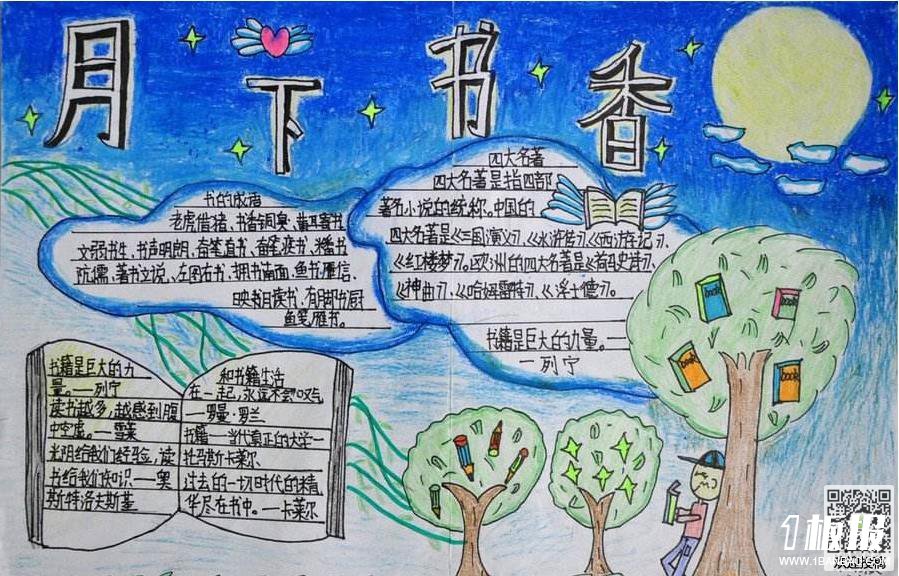 月下书香
书的成语
老虎借猪、书香铜臭、黄耳寄书
文弱书生、书声明朗、奋笔直书、奋笔疾书、
坑儒、著书立说、左图右书、拥书南面、鱼书雁信、
映雪读书、有脚书厨
鱼笺雁书。
四大名著
四大名著是指四部
著名小说的统称。中国的
四大名著是《三国演义》、《水浒传》、《西游记》、
《红楼梦》。欧洲的四大名著是《荷马史诗》、
《神曲》、《哈姆雷特》、《浮士德》。
书籍是巨大的力量。—
—列宁
书籍是巨大的力
量。——列宁
读书越多,越感到腹
中空虚。——雪莱
光阴给我们经验,读
书给我们知识——奥
斯特洛夫斯基
和书籍生活
在一起,永远不会叹气
——罗曼·罗兰
书籍——当代真正的大学——
托马斯卡莱尔
过去的一切时代的精
华尽在书中。——卡莱尔
book
book
book
book
1板报
WWW.1BANBAO.COM
欢迎投稿